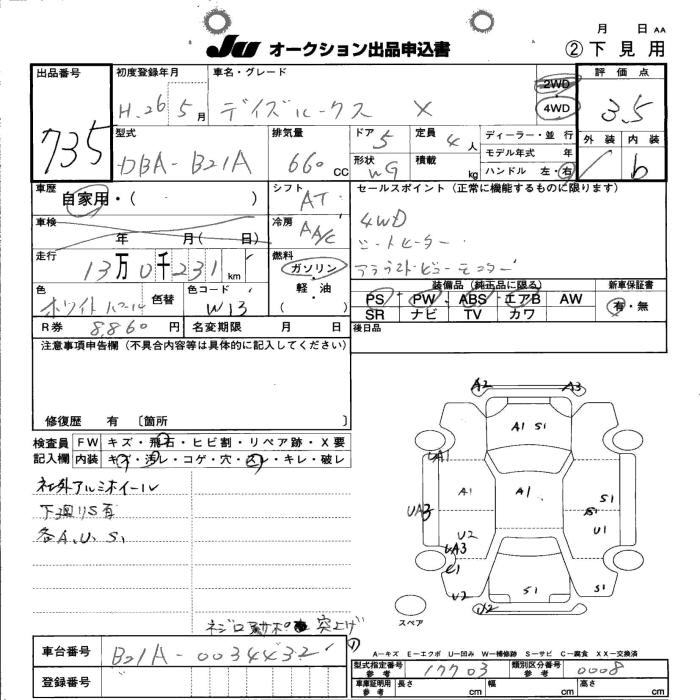 月 日 AA
JU オークション出品申込書
② 下見用
出品番号 初度登録年月 車名・グレード 評価点
735
H.26 5月 デイズルークス X
2WD
4WD
3.5
外装 内装
b
型式 排気量 ドア 5 定員 4人 ディーラー・並行
DBA-B21A 660CC
モデル年式 年
形状 WG 積載 kg ハンドル 左・右
車歴 シフト セールスポイント(正常に機能するものに限ります)
自家用・( ) AT
4WD
車検 冷房
年 月( 日) AA/C
シートヒーター
走行 燃料
13万0千231km ガソリン・
軽・油
( )
アラウンドビューモニター
色 色替 色コード
ホワイトパール W13
装備品(純正品に限る) 新車保証書
PS PW ABS エアB AW
有・無
SR ナビ TV カワ
R券 8,860円 名変期限 月 日
後日品
注意事項申告欄(不具合内容等は具体的に記入してください)
修復歴 有 〔箇所 〕
検査員 FW キズ・飛石・ヒビ割・リペア跡・X要
記入欄 内装 キズ・汚レ・コゲ・穴・スレ・キレ・破レ
社外アルミホイール
下廻りS有
各A.U.S.
A2 A3
A1 S1
UA1
A1 A1 S1
UA3 S1
U2 U1
UA3
U2 S1 S1
U2
スペア
A−キズ E−エクボ U−凹み W−補修跡 S−サビ C−腐食 XX−交換済
車台番号 B21A-0034432
登録番号
型式指定番号 参考 17703 類別区分番号 参考 0008
車庫証明用 参考 長さ cm 幅 cm 高さ cm